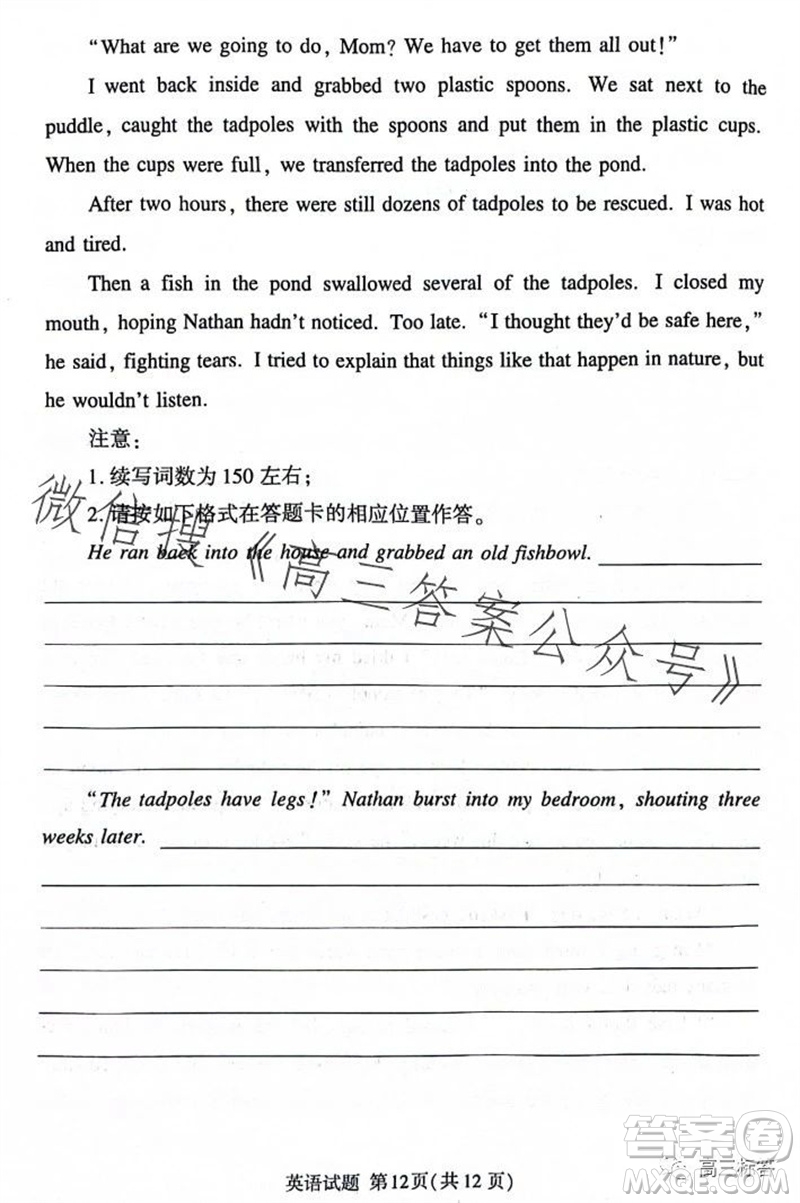 “What are we going to do, Mom? We have to get them all out!”
I went back inside and grabbed two plastic spoons. We sat next to the
puddle, caught the tadpoles with the spoons and put them in the plastic cups.
When the cups were full, we transferred the tadpoles into the pond.
After two hours, there were still dozens of tadpoles to be rescued. I was hot
and tired.
Then a fish in the pond swallowed several of the tadpoles. I closed my
mouth, hoping Nathan hadn’t noticed. Too late. “I thought they’d be safe here,”
he said, fighting tears. I tried to explain that things like that happen in nature, but
he wouldn’t listen.
注意:
1. 续写词数为 150 左右;
2. 请按如下格式在答题卡的相应位置作答。
微信搜《高三答案公众号》
He ran back into the house and grabbed an old fishbowl.
“The tadpoles have legs!” Nathan burst into my bedroom, shouting three
weeks later.
英语试题 第12页(共12页)
答案圈
高三标答
MXQE.COM